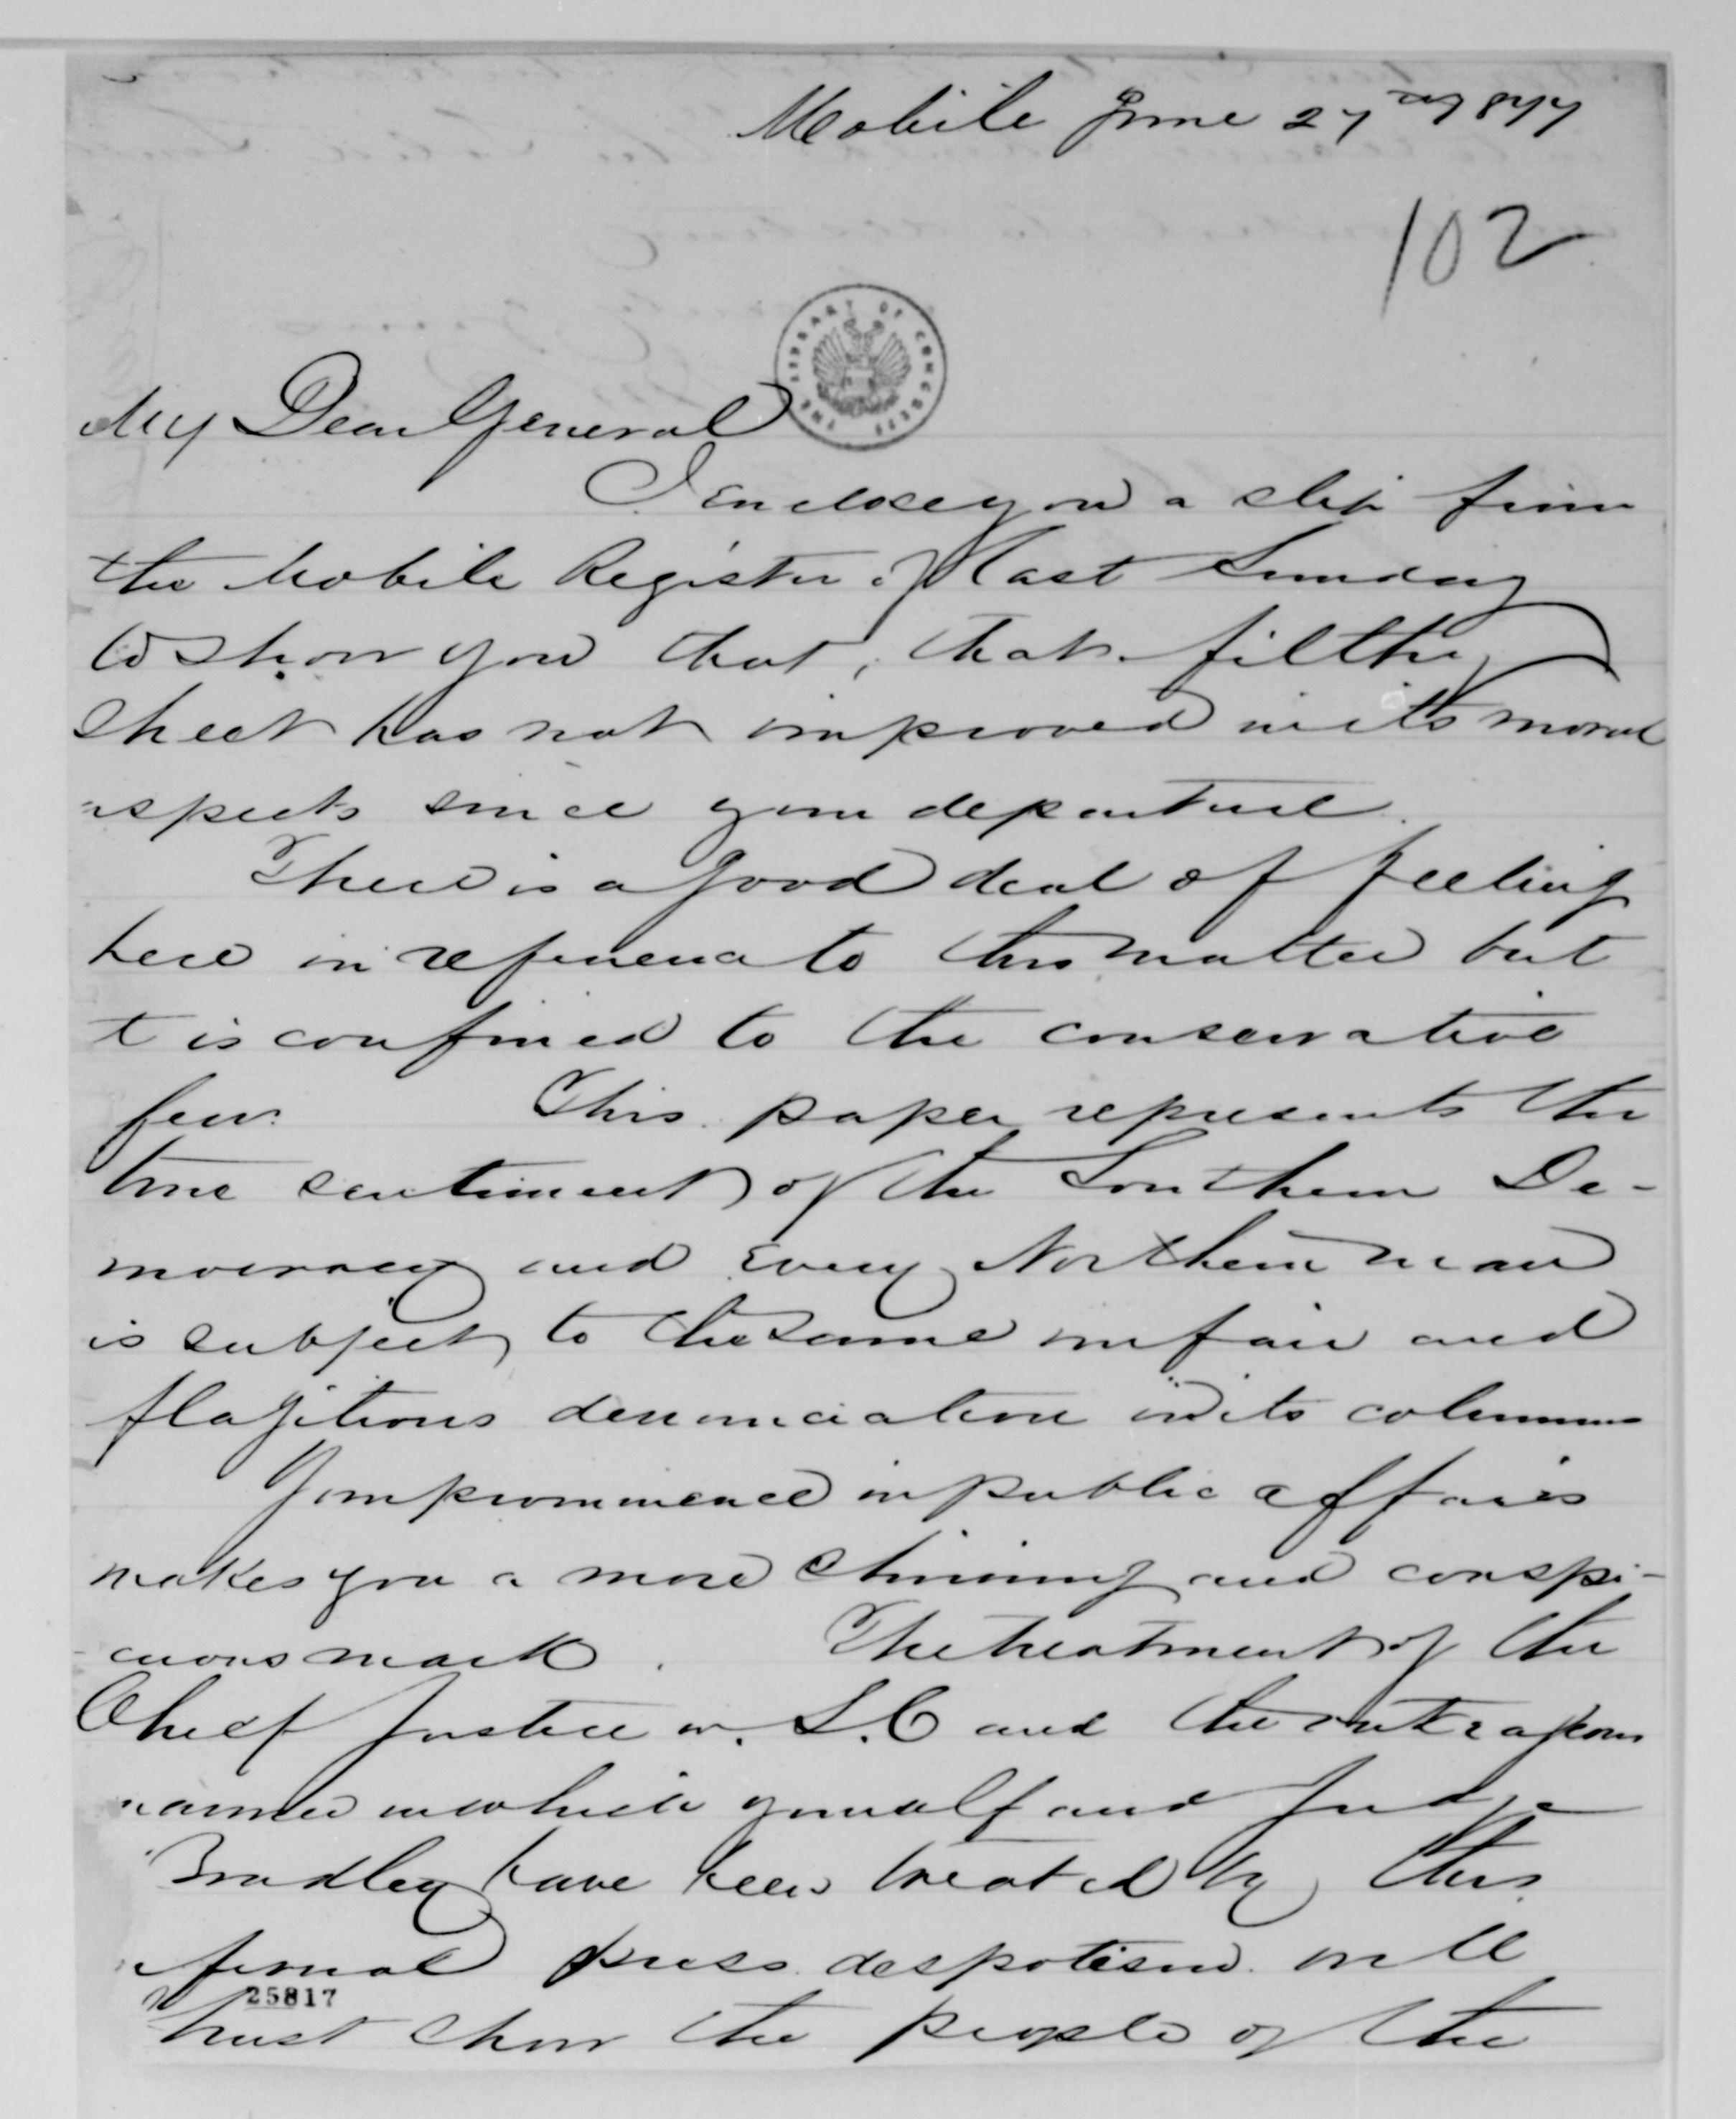 Mobile June 27th 1877
102
THE LIBRARY OF CONGRESS
My Dear General
I Enclose you a slip from
the Mobile Register of last Sunday
to show you that, that filthy
sheet has not improved in its moral
aspects since your departure.
There is a good deal of feeling
here in reference to this matter but
t is confined to the conservative
few. This paper represents the
true sentiment of the Southern De-
mocracy and Every Northern man
is subject to the same unfair and
flagitious denunciation in its columns
Your prominence in public affairs
makes you a more shining and conspi-
cuous mark. The treatment of the
Chief Justice in S.C and the outrageous
manner in which yourself and Judge
Bradley have been treated by this
infernal press despotism will
I trust show the people of the
25817